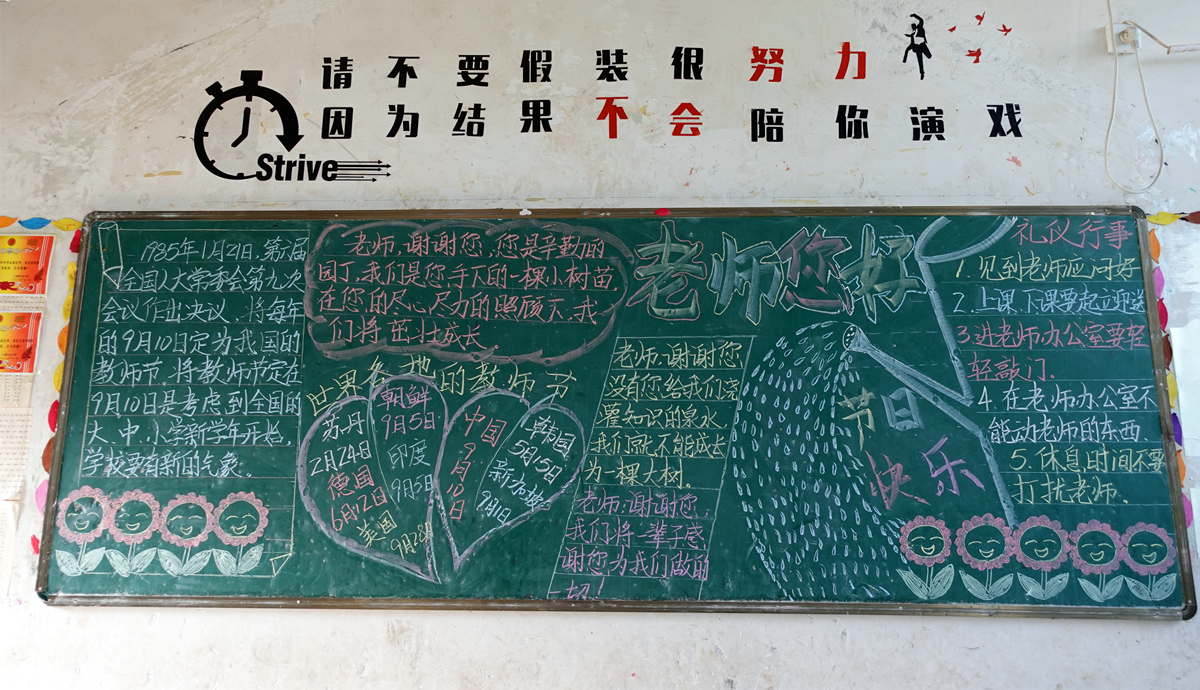 请不要假装很努力
因为结果不会陪你演戏
Strive
1985年1月21日,第六届
《全国人大常委会第九次
会议作出决议,将每年
的9月10日定为我国的
教师节,将教师节定在
9月10日是考虑到全国的
大、中、小学新学年开始,
学校要有新的气象。
老师,谢谢您,您是辛勤的
园丁,我们是您手下的一棵小树苗,
在您的尽心尽力的照顾下,我
们将茁壮成长。
世界各地的教师节
苏丹
2月24日
德国
6月12日
美国
9月28日
朝鲜
9月5日
印度
9月5日
中国
9月10日
韩国
5月15日
新加坡
9月1日
老师您好
老师,谢谢您
没有您给我们浇
灌知识的泉水
我们就不能成长
为一棵大树。
老师,谢谢您,
我们将一辈子感
谢您为我们做的
一切!
节日
快乐
礼仪行事
1.见到老师应问好
2.上课、下课要起立迎送
3.进老师办公室要轻
轻敲门。
4.在老师办公室不
能动老师的东西.
5.休息时间不要
打扰老师.